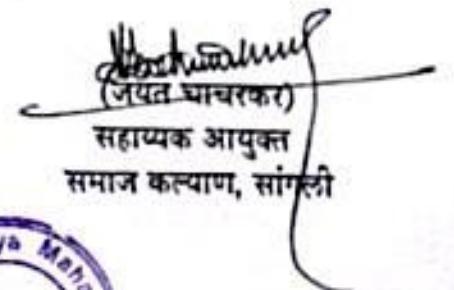 (जयंत चाचरकर)
सहाय्यक आयुक्त
समाज कल्याण, सांगली
ya Maha